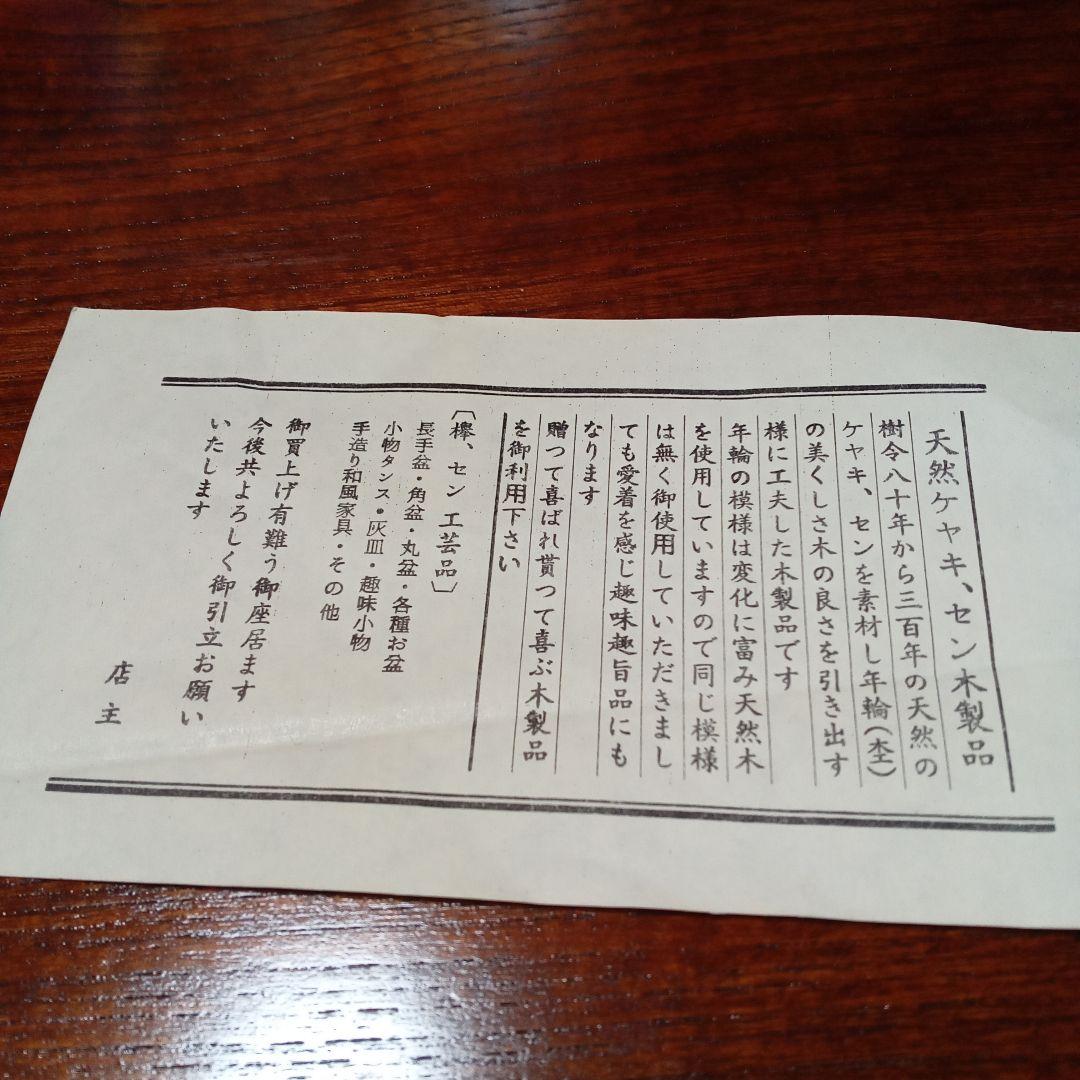 天然ケヤキ、セン木製品
樹令八十年から三百年の天然の
ケヤキ、センを素材し年輪(杢)
の美くしさ木の良さを引き出す
様に工夫した木製品です
年輪の模様は変化に富み天然木
を使用していますので同じ模様
は無く御使用していただきまし
ても愛着を感じ趣味趣旨品にも
なります
贈つて喜ばれ貰つて喜ぶ木製品
を御利用下さい
〔欅、セン工芸品〕
長手盆・角盆・丸盆・各種お盆
小物タンス・灰皿・趣味小物
手造り和風家具・その他
御買上げ有難う御座居ます
今後共よろしく御引立お願い
いたします
店主